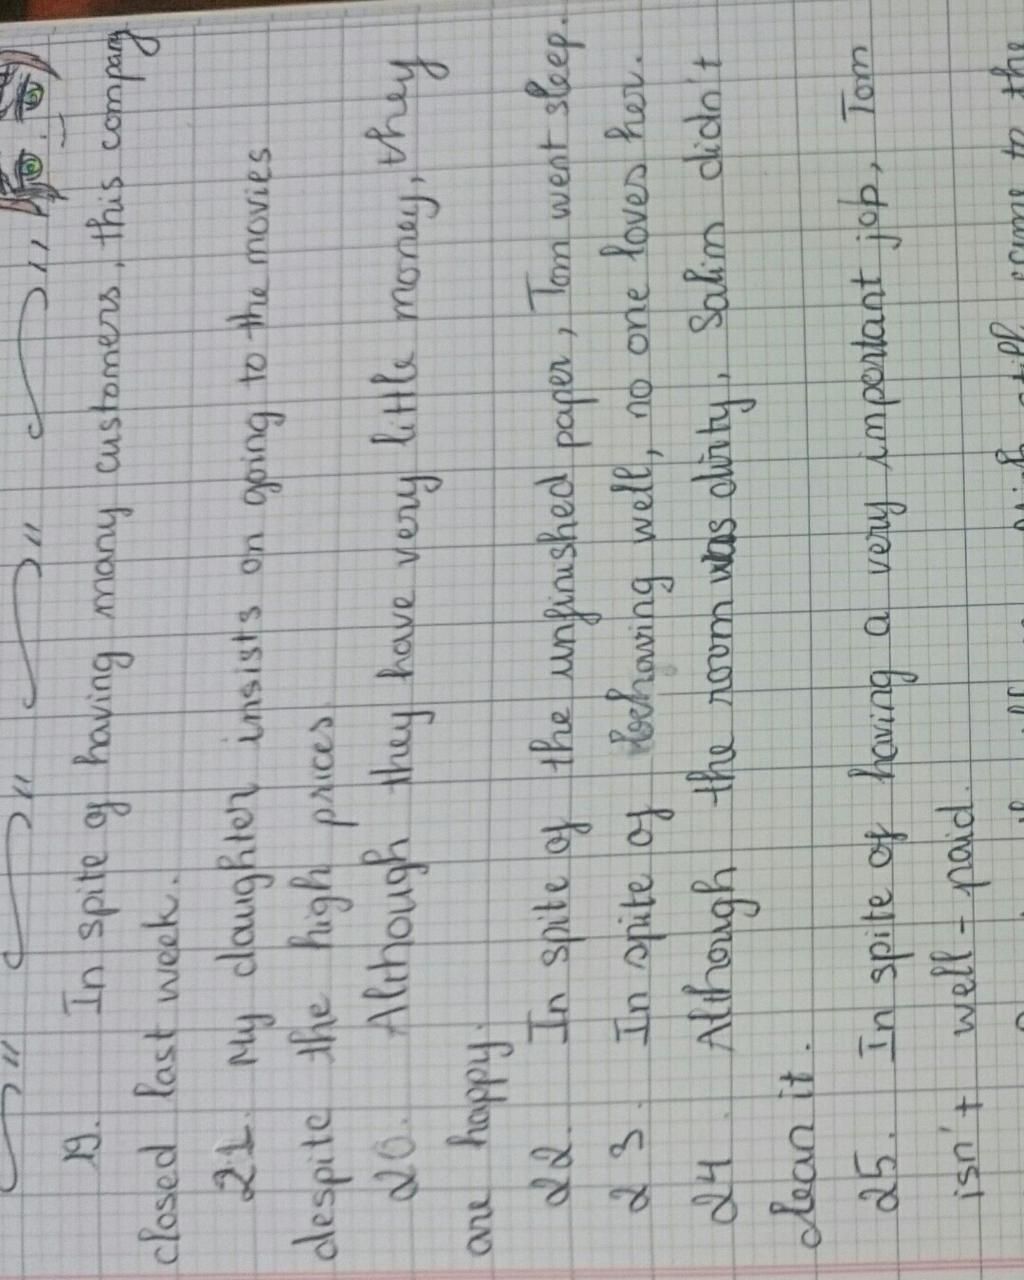 19. In spite of having many customers, this company
closed last week.
21. My daughter insists on going to the movies
despite the high prices.
20. Although they have very little money, they
are happy.
22. In spite of the unfinished paper, Tom went sleep.
23. In spite of behaving well, no one loves her.
24. Although the room was dirty, Salim didn't
clean it.
25. In spite of having a very important job, Tom
isn't well-paid.
to the